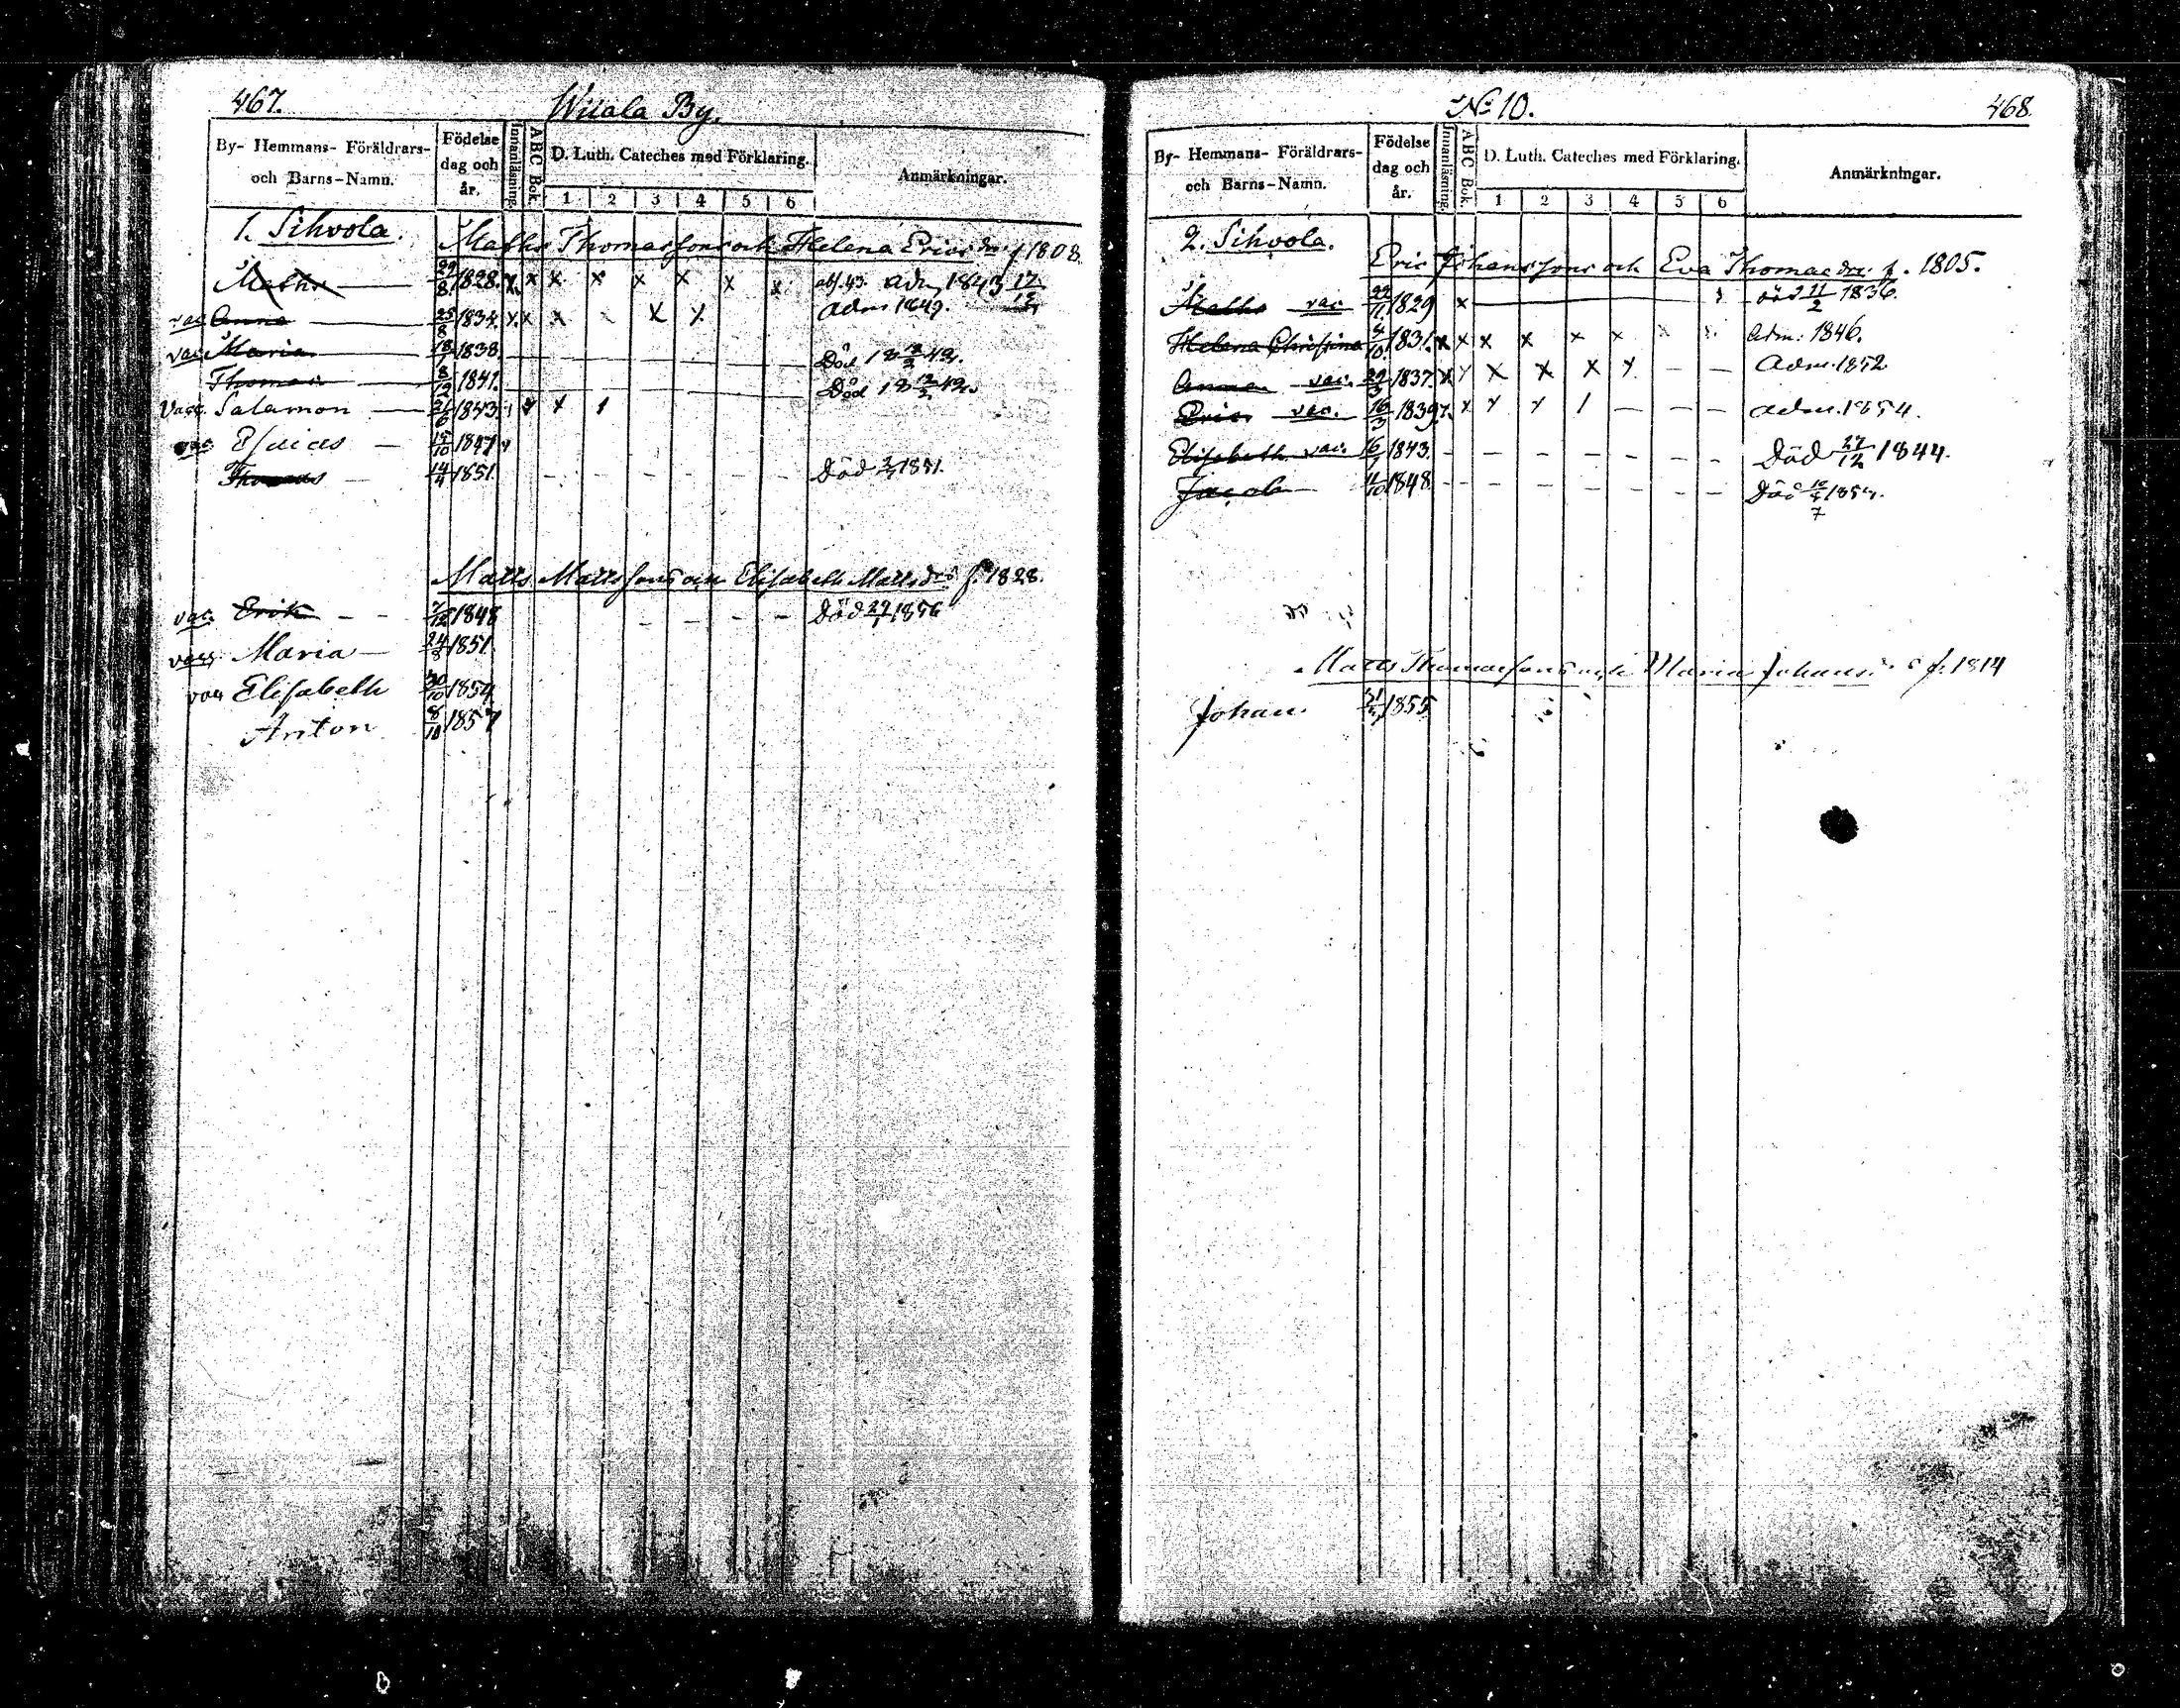 467. Wiiala By.
By- Hemmans- Föräldrars- och Barns-Namn. Födelse dag och år. Innanläsning. ABC Bok. D. Luth. Cateches med Förklaring. Anmärkningar.
1 2 3 4 5 6
1. Sihvola.
Maths Thomassons och Helena Ericsdrs f 1808.
Maths 29/8 1828. x x x x x x x x abs. 43. adm 1843
vac Anna 25/8 1834. x x x x x adm 1849.
vac Maria 1838. Död
Thomas 8/12 1841. Död
Vacc. Salamon 21/6 1843. x x 1
vac Esaias 15/10 1847
Thomas 14/4 1851. Död 1851.
Matts Mattssons och Elisabeth Mattsdrs f. 1828.
vac. Erik 7/12 1848 Död 1856
vacc. Maria 24/8 1851.
vac Elisabeth 30/10 1854
Anton 8/10 1857
No 10. 468.
By- Hemmans- Föräldrars- och Barns-Namn. Födelse dag och år. Innanläsning. ABC Bok. D. Luth. Cateches med Förklaring. Anmärkningar.
1 2 3 4 5 6
2. Sihvola.
Eric Johanssons och Eva Thomasdrs f. 1805.
Maths vac 22/11 1829 x död 11/2 1836.
Helena Christina 4/10 1831. x x x x x x Adm: 1846.
Anna vac. 29/3 1837. x x x x x x Adm. 1852
Eric vac. 16/3 1839 x x x x / adm. 1854.
Elisabeth vac. 16/1 1843. Död 27/12 1844.
Jacob 1848. Död
Matts Thomassons och Maria Johans f. 1814
Johan 1855